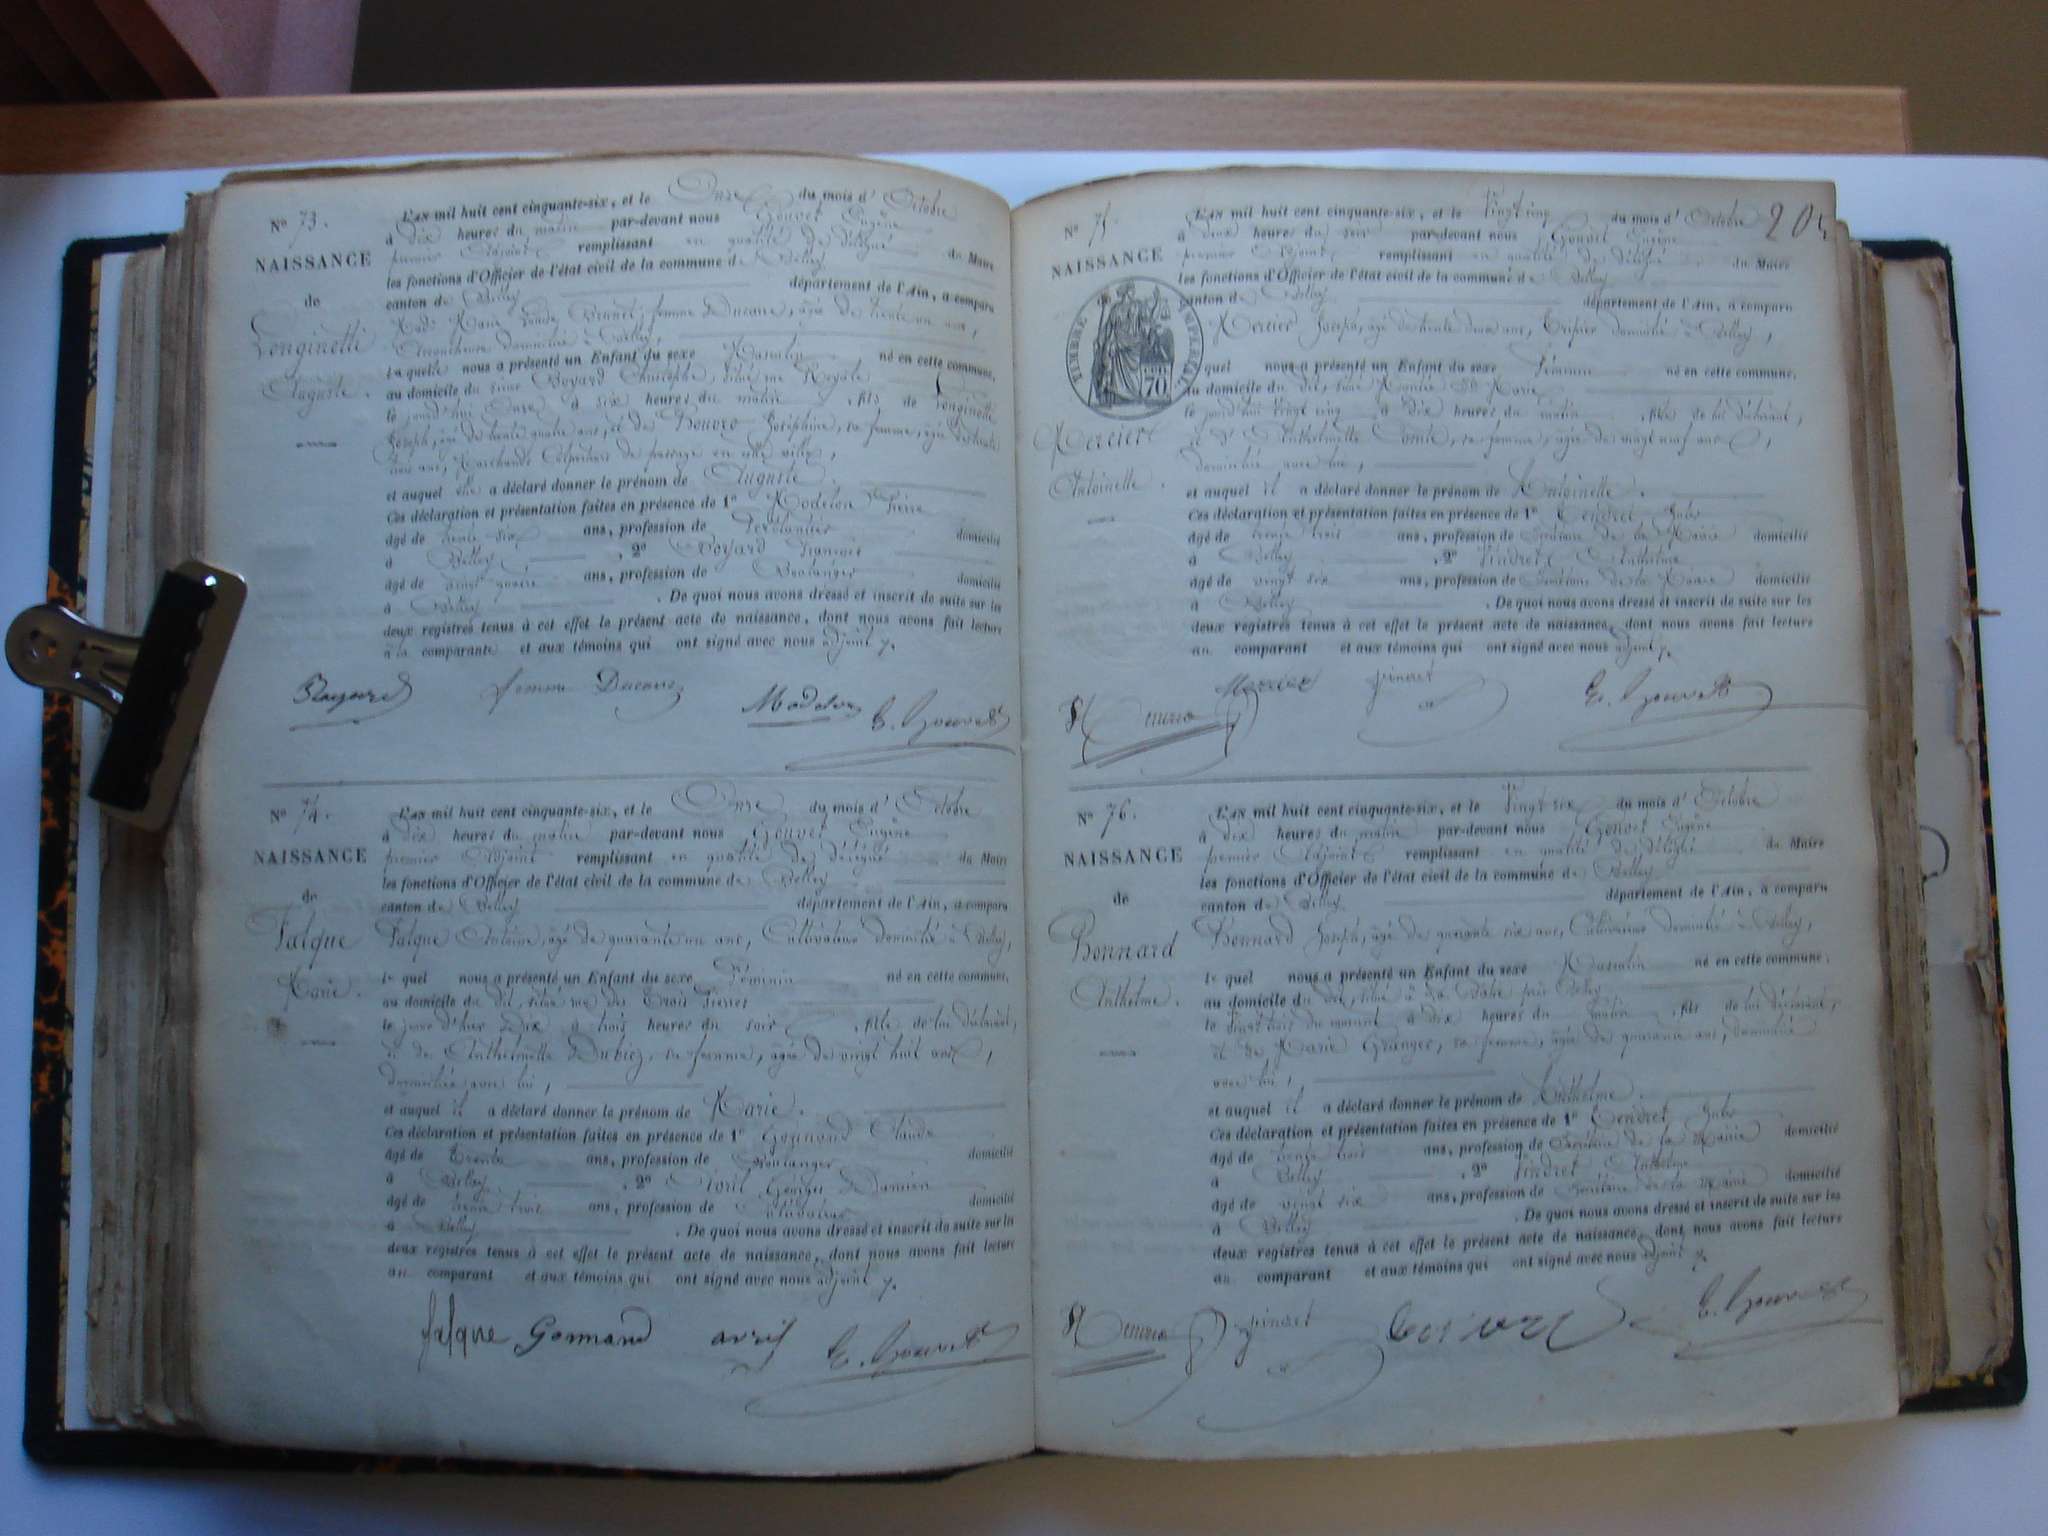 N° 73.
NAISSANCE
de
Longinetti
Auguste.
L'AN mil huit cent cinquante-six, et le Onze du mois d'Octobre
à dix heures du matin par-devant nous Gouvet Eugène
premier Adjoint remplissant en qualité de délégué du Maire
les fonctions d'Officier de l'état civil de la commune de Belley
canton de Belley département de l'Ain, a comparu
Marie femme Ducane, âgée de trente un ans,
Accoucheuse domiciliée à Belley,
laquelle nous a présenté un Enfant du sexe Masculin né en cette commune,
au domicile du sieur Boyard Christophe, situé rue Royale
le jourd'hui Onze à six heures du matin, fils de Longinetti
Joseph, âgé de trente quatre ans, et de Joséphine, sa femme, âgée de trente
ans, Marchands Colporteurs de passage en cette ville,
et auquel elle a déclaré donner le prénom de Auguste.
Ces déclaration et présentation faites en présence de 1° Modelon Pierre
âgé de trente six ans, profession de Ferblantier domicilié
à Belley, 2° Boyard François
âgé de vingt quatre ans, profession de Boulanger domicilié
à Belley. De quoi nous avons dressé et inscrit de suite sur les
deux registres tenus à cet effet le présent acte de naissance, dont nous avons fait lecture
à la comparante et aux témoins qui ont signé avec nous adjoint
femme Ducane
Modelon
E. Gouvet
N° 74.
NAISSANCE
de
Falque
Marie.
L'AN mil huit cent cinquante-six, et le Onze du mois d'Octobre
à dix heures du matin par-devant nous Gouvet Eugène
premier Adjoint remplissant en qualité de délégué du Maire
les fonctions d'Officier de l'état civil de la commune de Belley
canton de Belley département de l'Ain, a comparu
Falque Antoine, âgé de quarante un ans, Cultivateur domicilié à Belley,
lequel nous a présenté un Enfant du sexe Féminin né en cette commune,
au domicile du dit, situé rue des Trois
le jour d'hier Dix à trois heures du soir, fille de lui déclarant,
et de Anthelmette Dubiez, sa femme, âgée de vingt huit ans,
domiciliée avec lui,
et auquel il a déclaré donner le prénom de Marie.
Ces déclaration et présentation faites en présence de 1° Claude
âgé de trente ans, profession de Boulanger domicilié
à Belley, 2° Avril Georges Damien
âgé de trente trois ans, profession de domicilié
à Belley. De quoi nous avons dressé et inscrit de suite sur les
deux registres tenus à cet effet le présent acte de naissance, dont nous avons fait lecture
au comparant et aux témoins qui ont signé avec nous adjoint
falque Gonnand avril E. Gouvet
204
N° 75.
NAISSANCE
TIMBRE IMPÉRIAL
70
Mercier
Antoinette.
L'AN mil huit cent cinquante-six, et le Vingt cinq du mois d'Octobre
à deux heures du soir par-devant nous Gouvet Eugène
premier Adjoint remplissant en qualité de délégué du Maire
les fonctions d'Officier de l'état civil de la commune de Belley
canton de Belley département de l'Ain, a comparu
Mercier Joseph, âgé de trente deux ans, Tripier domicilié à Belley,
lequel nous a présenté un Enfant du sexe Féminin né en cette commune,
au domicile du dit, situé
le jourd'hui vingt cinq à dix heures du matin, fille de lui déclarant,
et d'Anthelmette Comte, sa femme, âgée de vingt neuf ans,
domiciliée avec lui,
et auquel il a déclaré donner le prénom de Antoinette.
Ces déclaration et présentation faites en présence de 1° Tendret Jules
âgé de trente trois ans, profession de Secrétaire de la Mairie domicilié
à Belley, 2° Pindret Anthelme
âgé de vingt six ans, profession de Secrétaire de la Mairie domicilié
à Belley. De quoi nous avons dressé et inscrit de suite sur les
deux registres tenus à cet effet le présent acte de naissance, dont nous avons fait lecture
au comparant et aux témoins qui ont signé avec nous adjoint
Mercier
E. Gouvet
N° 76.
NAISSANCE
de
Bonnard
Anthelme.
L'AN mil huit cent cinquante-six, et le Vingt six du mois d'Octobre
à dix heures du matin par-devant nous Gouvet Eugène
premier Adjoint remplissant en qualité de délégué du Maire
les fonctions d'Officier de l'état civil de la commune de Belley
canton de Belley département de l'Ain, a comparu
Bonnard Joseph, âgé de quarante six ans, Cultivateur domicilié à Belley,
lequel nous a présenté un Enfant du sexe Masculin né en cette commune,
au domicile du dit, situé à près Belley
le vingt trois du courant à dix heures du matin, fils de lui déclarant,
et de Marie Granger, sa femme, âgée de quarante ans, domiciliée
avec lui,
et auquel il a déclaré donner le prénom de Anthelme.
Ces déclaration et présentation faites en présence de 1° Tendret Jules
âgé de trente trois ans, profession de Secrétaire de la Mairie domicilié
à Belley, 2° Pindret Anthelme
âgé de vingt six ans, profession de Secrétaire de la Mairie domicilié
à Belley. De quoi nous avons dressé et inscrit de suite sur les
deux registres tenus à cet effet le présent acte de naissance, dont nous avons fait lecture
au comparant et aux témoins qui ont signé avec nous adjoint
E. Gouvet